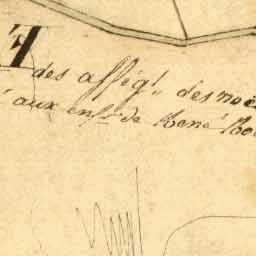 des affég.ts des noë
aux enf.ts de René Bo